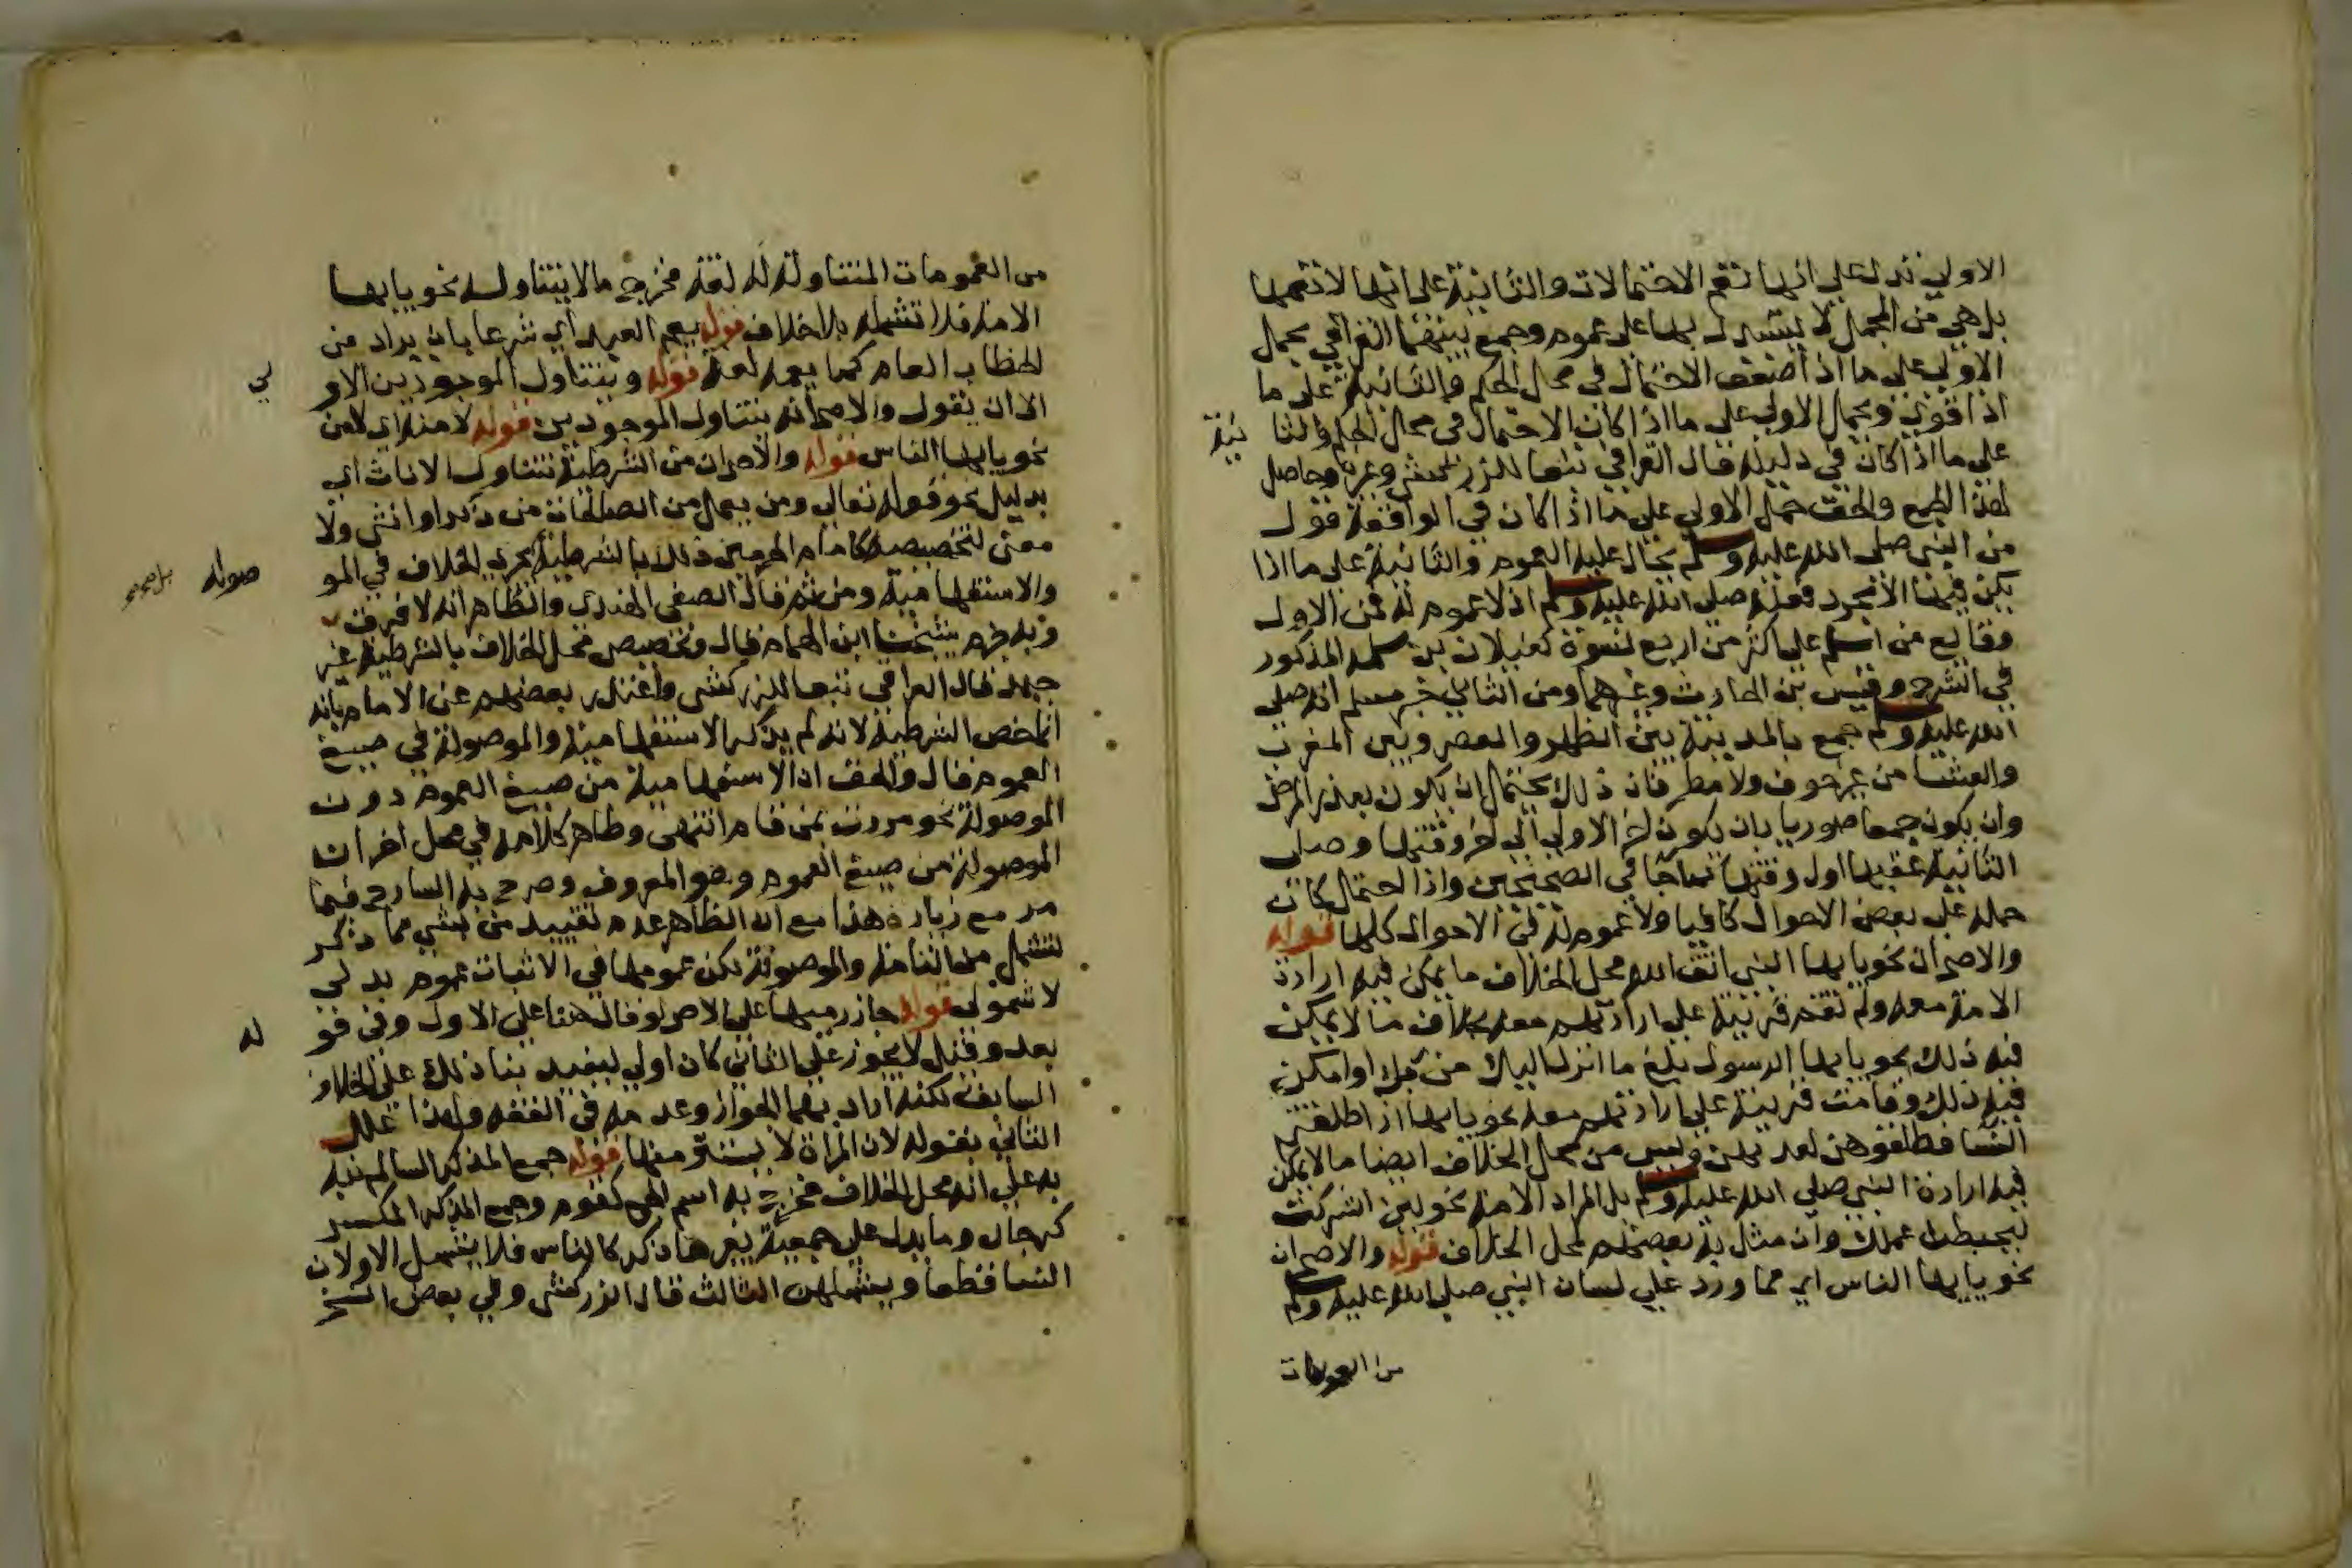 الاولي تدل علي انها تعم الاحتمالات والثانية على انها لا تعمها
بل هي من المجمل لا يستدل بها على عموم وجمع بينهما القرافي بحمل
الاولي على ما اذا ضعف الاحتمال في محل الحكم والثانية على ما
اذا قوي ويحمل الاولي على ما اذا كان الاحتمال في محل الحكم والثا نية
علي ما اذا كان في دليله قال العراقي تبعا للزركشي وغيره وحاصل
هذا الجمع والحق حمل الاولي على ما اذا كان في الواقعة قول
من النبي صلى الله عليه وسلم يحال عليه العموم والثانية على ما اذا
يكن فيها الا مجرد فعله صلى الله عليه وسلم اذ لا عموم له فمن الاول
وقايع من اسلم على اكثر من اربع نسوة كغيلان بن سلمه المذكور
في الشرح وقيس بن الحارث وغيرهما ومن الثاني خبر مسلم انه صلى
الله عليه وسلم جمع بالمدينة بين الظهر والعصر وبين المغرب
والعشا من غير خوف ولا مطر فان ذلك يحتمل ان يكون بعذر المرض
وان يكون جمعا صوريا بان يكون اخر الاولي الى اخر وقتها وصلي
الثانية عقبها اول وقتها كما جا في الصحيحين واذا احتمل كان
حمله على بعض الاحوال كافيا ولا عموم له في الاحوال كلها قوله
والاصح ان نحو يا ايها النبي اتق الله محل الخلاف ما يمكن فيه ارادة
الامة معه ولم تقم قرينة علي ارادتهم معه بخلاف ما لا يمكن
فيه ذلك نحو يا ايها الرسول بلغ ما انزل اليك من ربك او امكن
فيه ذلك وقامت قرينة علي ارادتهم معه نحو يا ايها النبي اذا طلقتم
النسا فطلقوهن لعدتهن وليس من محل الخلاف ايضا ما لا يمكن
فيه ارادة النبي صلي الله عليه وسلم بل المراد الامة نحو لين اشركت
ليحبطن عملك وان مثل به بعضهم لمحل الخلاف قوله والاصح ان
نحو يا ايها الناس اي مما ورد علي لسان النبي صلى الله عليه وسلم
من العمومات
من العمومات المتناولة له لغة مخرج ما لا يتناوله نحو يا ايها
الامة فلا تشمله بلا خلاف قوله يعم العبد اي شرعا بان يراد من
الخطاب العام كما يعمه لغة قوله ويتناول الموجودين الاو لي
الى ان يقول والاصح انه يتناول الموجودين قوله لامنه اي لامن
نحو يا ايها الناس قوله والاصح ان من الشرطية تتناول الاناث اي
بدليل نحو قوله تعالي ومن يعمل من الصالحات من ذكر او انثى ولا
معنى لتخصيصه كامام الحرمين ذلك بالشرطية بجري الخلاف في المو صوله
والاستفهامية ومن ثم قال الصفي الهندي والظاهر انه لا فرق
وبه جزم شيخنا ابن الهمام فقال وتخصيص محل الخلاف بالشرطية غير
جيد قال العراقي تبعا للزركشي واعتذر بعضهم عن الامام بانه
انما خص الشرطية لانه لم يذكر الاستفهامية والموصولة في صيغ
العموم قال والحق ان الاستفهامية من صيغ العموم دون
الموصولة نحو مررت بمن قام انتهى وظاهر كلامه في محل اخر ان
الموصولة من صيغ العموم وهو المعروف وصرح به الشارح فيما
مر مع زيادة هذا مع ان الظاهر عدم تقييد من بشي مما ذكر
لتشمل من التامة والموصوفة لكن عمومها في الاثبات عموم بدلي
لا شمولي قوله جاز رميها على الاصح لو قال هنا على الاول وفي قو له
بعد وقيل لا يجوز على الثاني كان اولي ليفيد بنا ذلك على الخلاف
السابق لكنه اراد بهما الجواز وعدمه في الفقه ولهذا علل
الثاني بقوله لان المراة لا يستتر منها قوله جمع المذكر السالم نبه
به علي انه محل الخلاف فخرج به اسم الجمع كقوم وجمع المذكر المكسر
كرجال وما يدل علي جمعية بغيرهما ذكر كالناس فلا يشمل الاولان
النسا قطعا ويشملهن الثالث قال الزركشي وفي بعض النسخ